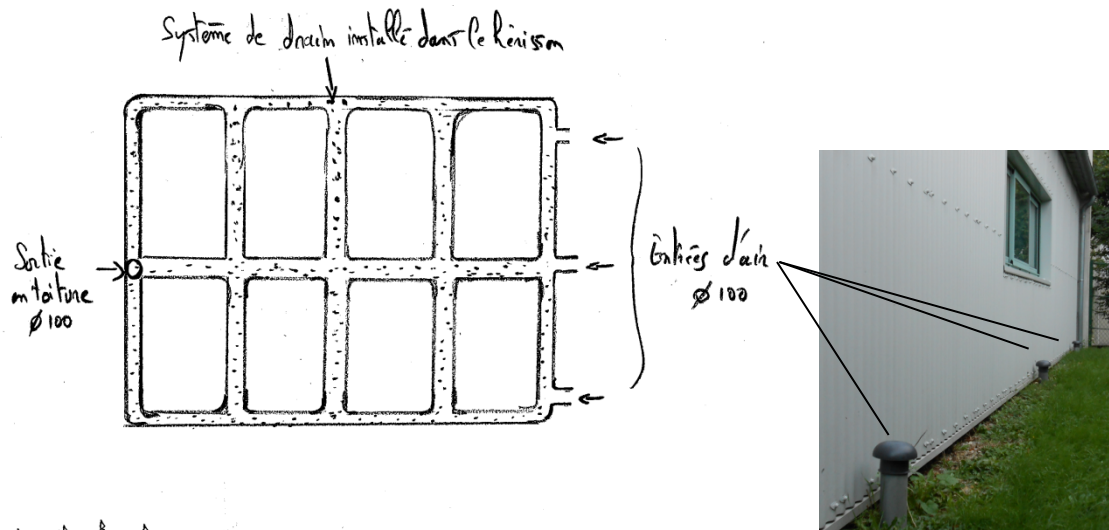 Système de drain installé dans le hérisson
Sortie
en toiture
Ø 100
Entrées d'air
Ø 100